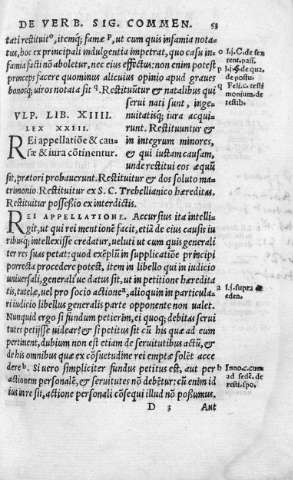 DE VERB. SIG. COMMEN. 53
tati restituitᵒ, itemq́; famæᵖ, ut cum quis infamia nota-
tus, hoc ex principali indulgentia impetrat, quo casu in-
famia facti nō aboletur, nec eius effectus: non enim potest
princeps facere quominus alicuius opinio apud graues
bonosq́; uiros notata sit ᑫ. Restituūtur & natalibus qui
serui nati sunt, inge-
VLP. LIB. XIIII.
nuitatisq́; iura acqui-
LEX XXIII.
runt. Restituuntur &
REi appellatiōe & cau-
in integrum minores,
sæ & iura cōtinentur.
& qui iustam causam,
unde restitui eos æquū
sit, prætori probauerunt. Restituitur & dos soluto ma-
trimonio. Restituitur ex S. C. Trebellianico hæreditas.
Restituitur possessio ex interdictis.
REI APPELLATIONE. Accursius ita intelli-
git, ut qui rei mentionē facit, etiā de eius causis iu
ribusq́; intellexisse credatur, ueluti ut cum quis generali
ter res suas petat: quod exēpli in supplicatiōe principi
porrecta procedere potest, item in libello qui in iudicio
uniuersali, generaliue datus sit, ut in petitione hæredita
tis, tutelæ, uel pro socio actioneᵃ, alioquin in particula-
ri iudicio libellus generalis parte opponente non ualet.
Nunquid ergo si fundum petierim, ei quoq; debitas serui
tutes petijsse uidear? & si petitus sit cū his quæ ad eum
pertinent, dubium non est etiam de seruitutibus actū, &
de his omnibus quæ ex cōsuetudine rei emptæ solēt acce
dereᵇ. Si uero simpliciter fundus petitus est, aut per
actionem personalē, & seruitutes nō debētur: cū enim id
ius in re sit, actione personali cōsequi illud nō possumus.
D 3 Aut
o l.j. C. de sen
tent. pass.
p l.j. §. de qua.
de postu.
q
monium. de
testib.
a l.j. supra
eden.
b Inno. c. cum
ad sedē. de
resti. spo.